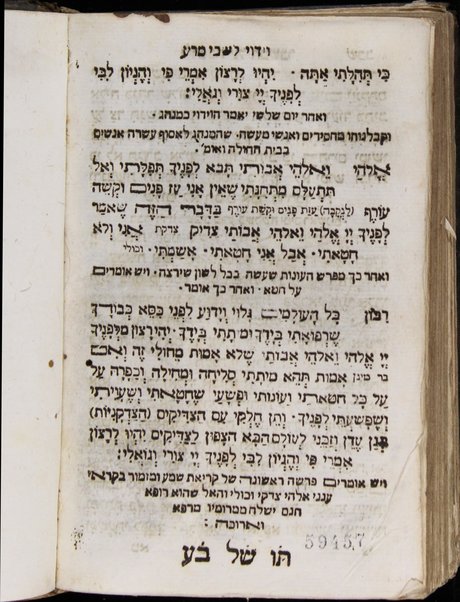 וידוי לשכבי מרע
כִּי תְּהִלָּתִי אַתָּה׃ יִהְיוּ לְרָצוֹן אִמְרֵי פִי וְהֶגְיוֹן לִבִּי
לְפָנֶיךָ יְיָ צוּרִי וְגוֹאֲלִי׃
ואחר יום שלשי יאמר הוידוי כמנהג׳
וקבלנוהו מחסידים ואנשי מעשה׳ שהמנהג לאסוף עשרה אנשים
בבית החולה ואומ׳׃
אֱלֹהַי וֵאלֹהֵי אֲבוֹתַי תָּבֹא לְפָנֶיךָ תְּפִלָּתִי וְאַל
תִּתְעַלַּם מִתְּחִנָּתִי שֶׁאֵין אֲנִי עַז פָּנִים וּקְשֵׁה
עוֹרֶף עַזּוּת פָּנִים וּקְשִׁת עוֹרֶף בַּדָּבָר הַזֶּה שֶׁאֹמַר
לְפָנֶיךָ יְיָ אֱלֹהַי וֵאלֹהֵי אֲבוֹתַי צַדִּיק צדקת אֲנִי וְלֹא
חָטָאתִי׳ אֲבָל אֲנִי חָטָאתִי׳ אָשַׁמְתִּי׳ וכולי
ואחר כך מפרש העונות שעשה בכל לשון שירצה׳ ויש אומרים
על חטא׳ ואחר כך אומר׳
רִבּוֹן כָּל הָעוֹלָמִים גָּלוּי וְיָדוּעַ לִפְנֵי כִסֵּא כְבוֹדֶךָ
שֶׁרְפוּאָתִי בְּיָדֶךָ וּמִתָתִי בְּיָדֶךָ׳ יְהִי רָצוֹן מִלְּפָנֶיךָ
יְיָ אֱלֹהַי וֵאלֹהֵי אֲבוֹתַי שֶׁלֹּא אָמוּת מֵחוֹלִי זֶה וְאִם
בר מינן אָמוּת תְּהֵא מִיתָתִי סְלִיחָה וּמְחִילָה וְכַפָּרָה עַל
עַל כָּל חַטֹּאתַי וַעֲוֹנוֹתַי וּפְשָׁעַי שֶׁחָטָאתִי וְשֶׁעָוִיתִי
וְשֶׁפָּשַׁעְתִּי לְפָנֶיךָ׳ וְתֵן חֶלְקִי עִם הַצַּדִּיקִים (הצדקניות)
בְּגַן עֵדֶן וְזַכֵּנִי לָעוֹלָם הַבָּא הַצָּפוּן לַצַּדִּיקִים יִהְיוּ לְרָצוֹן
אִמְרֵי פִי וְהֶגְיוֹן לִבִּי לְפָנֶיךָ יְיָ צוּרִי וְגוֹאֲלִי׃
ויש אומרים פרשה ראשונה של קריאת שמע ומזמור בקראי
ענני אלהי צדקי וכולי והאל שהוא רופא
חנם ישלח ממרומיו מרפא
וארוכה׃
תו של בע
59457